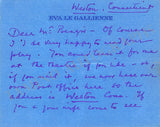 Weston, Connecticut
EVA LE GALLIENNE
Dear Mr. - Of course
I'd be very happy to read your
play. You could leave it for me
at the Theatre if you like - or,
if you mail it, we now have our
own Post Office here so the
address is Weston Conn. If
you & your wife come to see